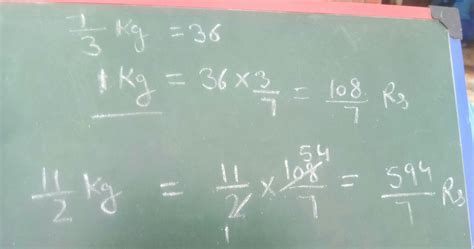 7/3 Kg = 36
1 Kg = 36 × 3/7 = 108/7 Rs
11/2 Kg = 11/2 × 108/7 = 594/7 Rs
54
1